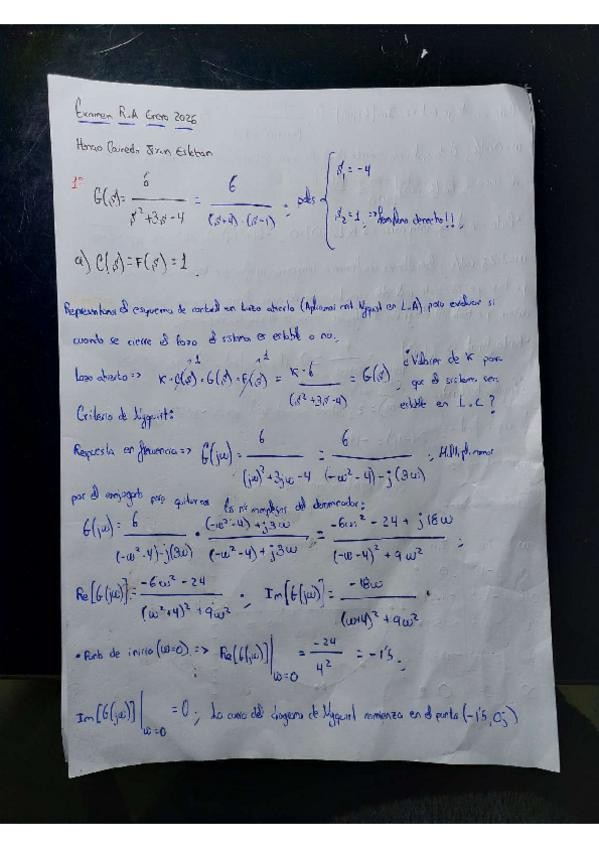 Examen R.A Enero 2026
Juan Esteban
1º G(s)= 6 / s²+3s-4 = 6 / (s+4)·(s-1) ; polos { s₁=-4
s₂=1 => Semiplano derecho!!
a) C(s)=F(s)=1
Representamos el esquema de control en lazo abierto (Aplicamos Nyquist en L.A) para evaluar si
cuando se cierre el lazo el sistema es estable o no.
Lazo abierto => K·C(s)·G(s)·F(s) = K·6 / (s²+3s-4) = G(s) ¿Valor de K para
que el sistema sea
estable en L.C?
Criterio de Nyquist:
Respuesta en frecuencia => G(jω)= 6 / (jω)²+3jω-4 = 6 / (-ω²-4)-j(3ω) ; Multiplicamos
por el conjugado para quitarnos los nº complejos del denominador:
G(jω)= 6 / (-ω²-4)-j(3ω) · (-ω²-4)+j3ω / (-ω²-4)+j3ω = -6ω²-24+j18ω / (-ω-4)²+9ω² ;
Re[G(jω)]= -6ω²-24 / (ω²+4)²+9ω² ; Im[G(jω)]= -18ω / (ω+4)²+9ω² .
• Punto de inicio (ω=0) => Re[G(jω)]|ω=0 = -24 / 4² = -1'5 ;
Im[G(jω)]|ω=0 = 0 ; La curva del diagrama de Nyquist comienza en el punto (-1'5,0j)